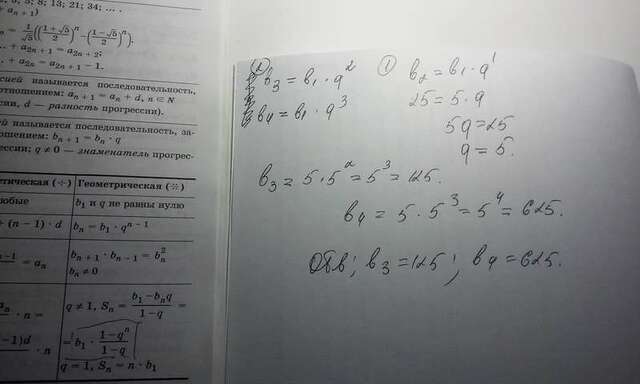 5; 8; 13; 21; 34; ... .
+ a_{n+1})
= \frac{1}{\sqrt{5}}((\frac{1+\sqrt{5}}{2})^n - (\frac{1-\sqrt{5}}{2})^n).
.. + a_{2n+1} = a_{2n+2};
.. + a_{2n} = a_{2n+1} − 1.
сией называется последовательность,
отношением: a_{n+1} = a_n + d, n ∈ N
сии, d — разность прогрессии).
ей называется последовательность, за-
ношением: b_{n+1} = b_n · q
ессии; q ≠ 0 — знаменатель прогрес-
тическая (÷) Геометрическая (∺)
любые b₁ и q не равны нулю
+ (n − 1) · d b_n = b₁ · q^{n−1}
= a_n b_{n+1} · b_{n−1} = b_n^2
b_n ≠ 0
· n = q ≠ 1, S_n = \frac{b_1 − b_n q}{1−q} =
−1)d · n = b₁ · \frac{1−q^n}{1−q}
q = 1, S_n = n · b₁
② b₃ = b₁ · q²
b₄ = b₁ · q³
① b₂ = b₁ · q¹
25 = 5 · q
5q = 25
q = 5.
b₃ = 5 · 5² = 5³ = 125.
b₄ = 5 · 5³ = 5⁴ = 625.
Отв: b₃ = 125; b₄ = 625.